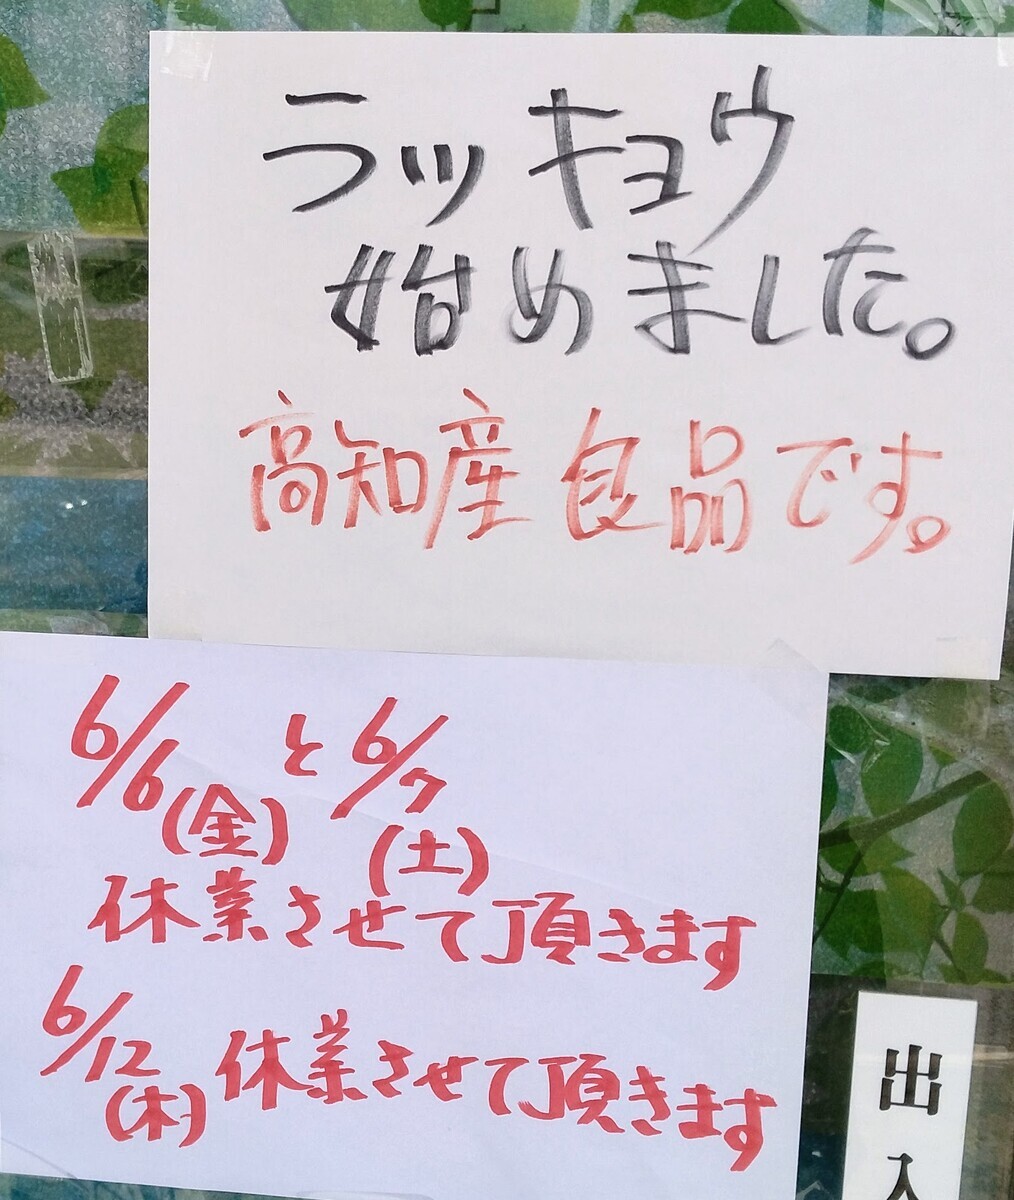 ラッキョウ
始めました。
高知産 良品です。
6/6(金)と6/7(土)
休業させて頂きます
6/12(木)休業させて頂きます
出入